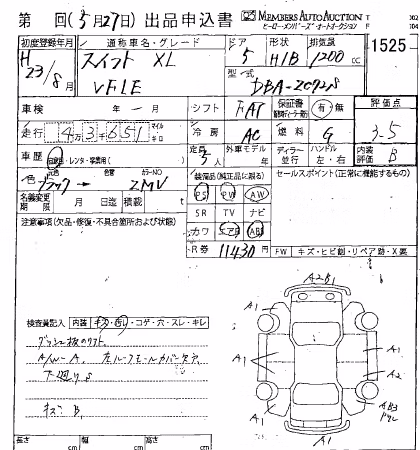 第 回(5月27日)出品申込書 MEMBERS AUTO AUCTION
ヒーローメンバーズ・オートオークション
初度登録年月 通称車名・グレード ドア 形状 排気量
H 23/8月 スイフト XL 5 H/B 1200 cc 1525
VFIE 型式 DBA-ZC72S
車検 年 - 月 シフト FAT 保証書 有・無 評価点
走行 4万3千651 マイル キロ 冷房 AC 燃料 G 3-5
車歴 自家用・レンタ・学習用( ) 定員 5人 外車モデル 年 ディーラー 並行 ハンドル 左・右 内装評価 B
色 元色 ブラック → 色替 カラーNO ZMV 装備品(純正品に限る) セールスポイント(正常に機能するもの)
名義変更期限 月 日迄 積載 t PS PW AW
注意事項(欠品・修復・不具合箇所および状態) SR TV ナビ
カワ エアB ABS
R券 11430円 FW キズ・ヒビ割・リペア跡・X要
A2B1
検査員記入 内装 キズ・汚レ・コゲ・穴・スレ・キレ
A1 A1
A/W-A
A1 A1
下廻りS A2
A1
キズ B, AB3
A1 A1
長さ cm 幅 cm 高さ cm